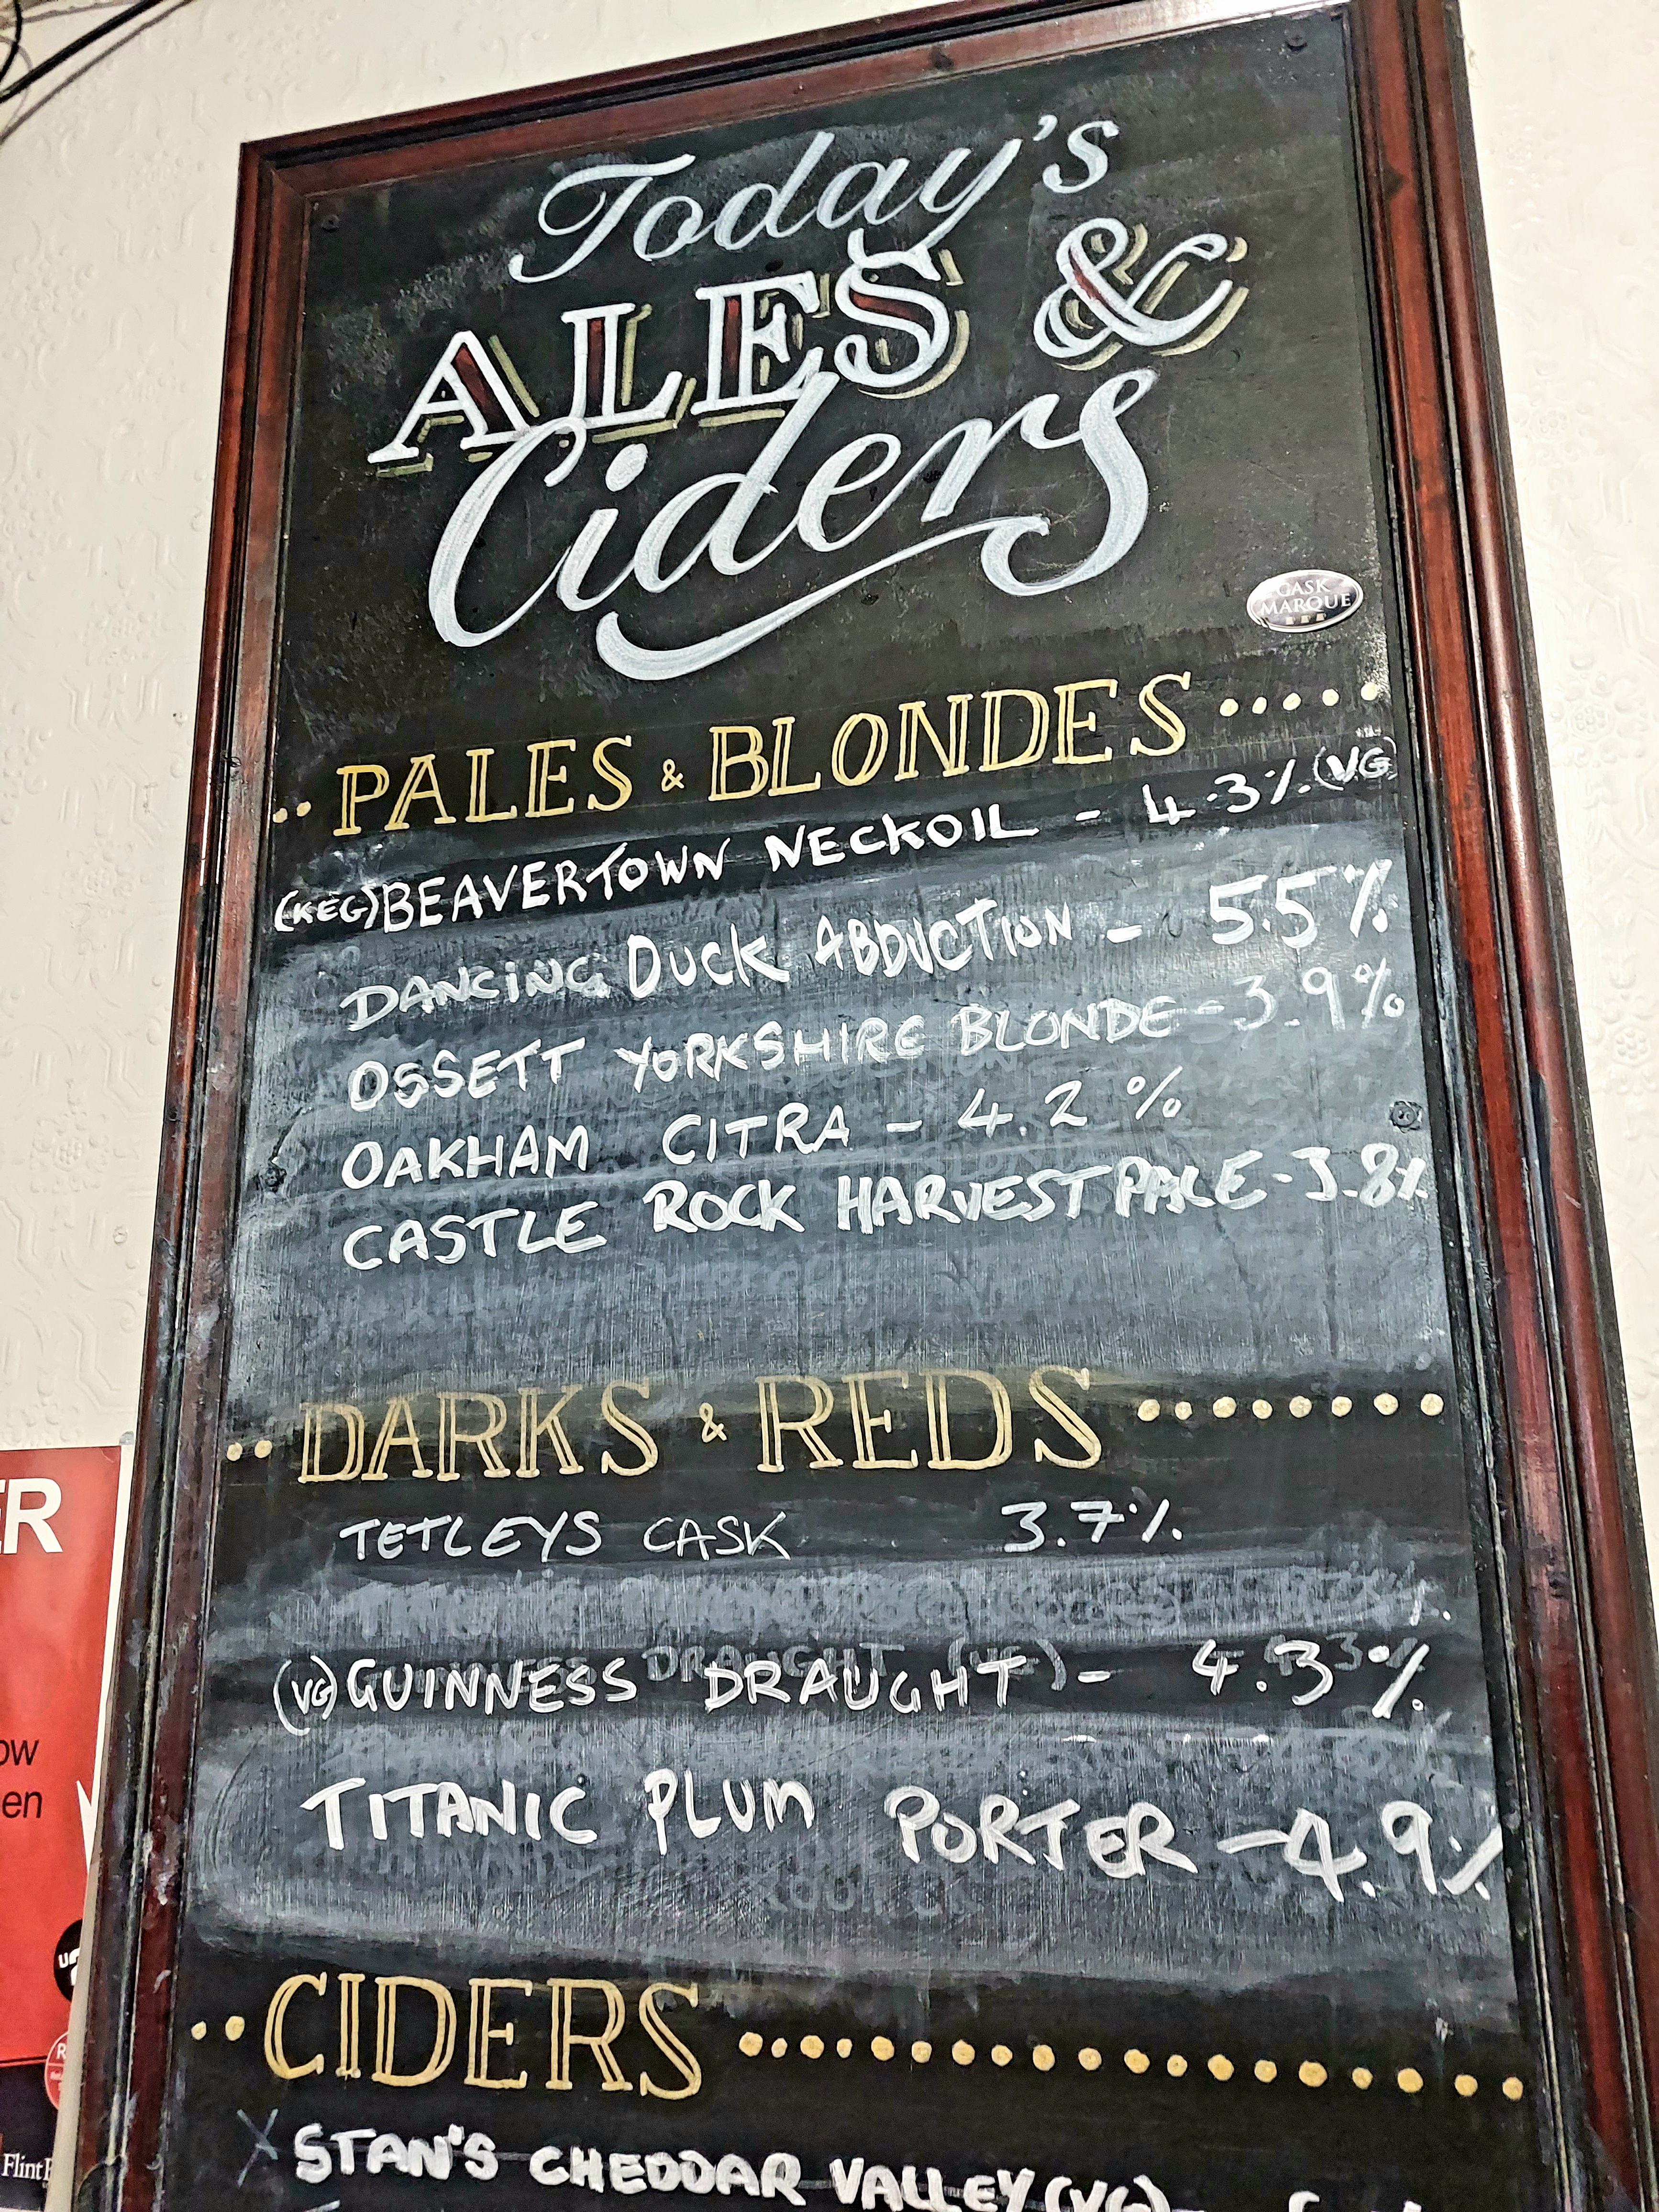 Today's
ALES &
Ciders
CASK
MARQUE
PALES & BLONDES
(KEG) BEAVERTOWN NECKOIL - 4.3% (VG)
DANCING DUCK ABDUCTION - 5.5%
OSSETT YORKSHIRE BLONDE - 3.9%
OAKHAM CITRA - 4.2%
CASTLE ROCK HARVEST PALE - 3.8%
DARKS & REDS
TETLEYS CASK 3.7%
(VG) GUINNESS DRAUGHT - 4.3%
TITANIC PLUM PORTER - 4.9%
CIDERS
X STAN'S CHEDDAR VALLEY (VG)
ER
ow
en
Flint